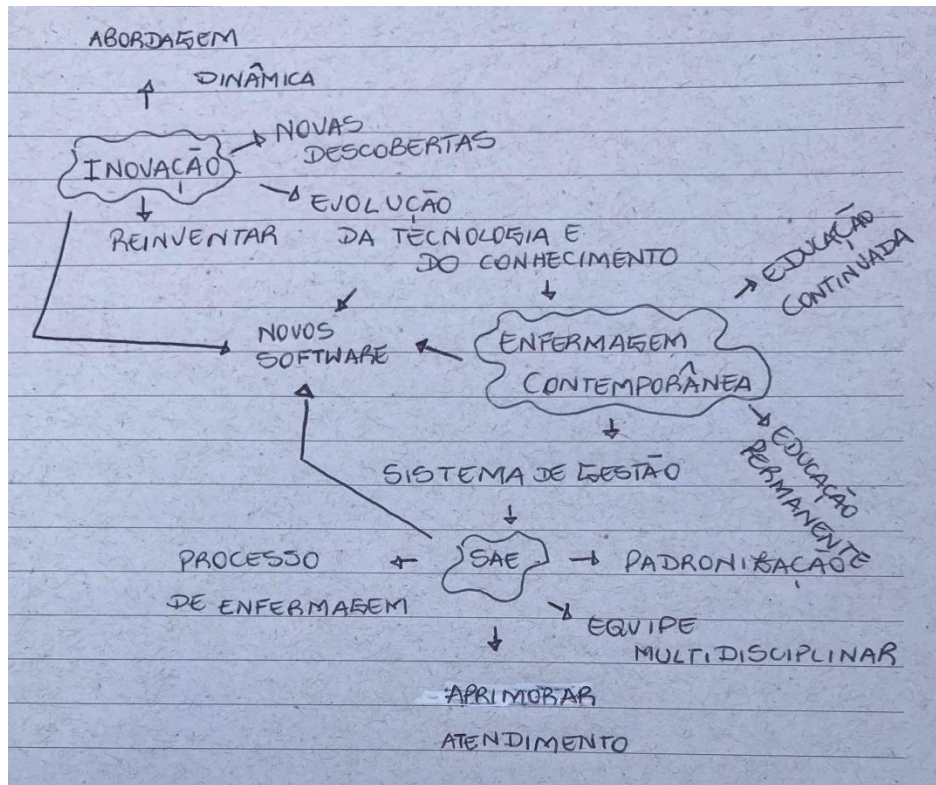 ABORDAGEM
DINÂMICA
INOVAÇÃO
NOVAS
DESCOBERTAS
EVOLUÇÃO
DA TECNOLOGIA E
DO CONHECIMENTO
REINVENTAR
EDUCAÇÃO
CONTINUADA
NOVOS
SOFTWARE
ENFERMAGEM
CONTEMPORÂNEA
EDUCAÇÃO
PERMANENTE
SISTEMA DE GESTÃO
SAE
PROCESSO
DE ENFERMAGEM
PADRONIZAÇÃO
EQUIPE
MULTIDISCIPLINAR
APRIMORAR
ATENDIMENTO